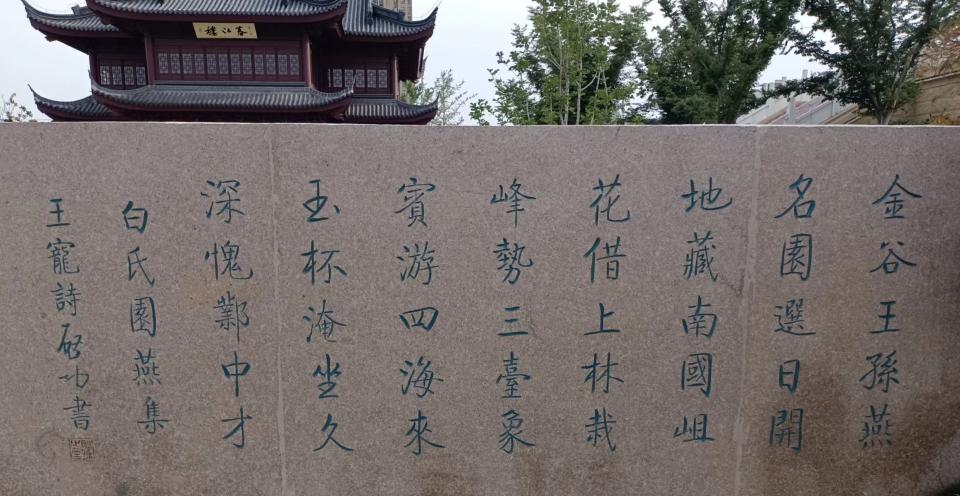 春江樓
金谷王孫燕
名園選日開
地藏南國岨
花借上林栽
峰勢三臺象
賓游四海來
玉杯淹坐久
深愧鄴中才
白氏園燕集
王寵詩启功書